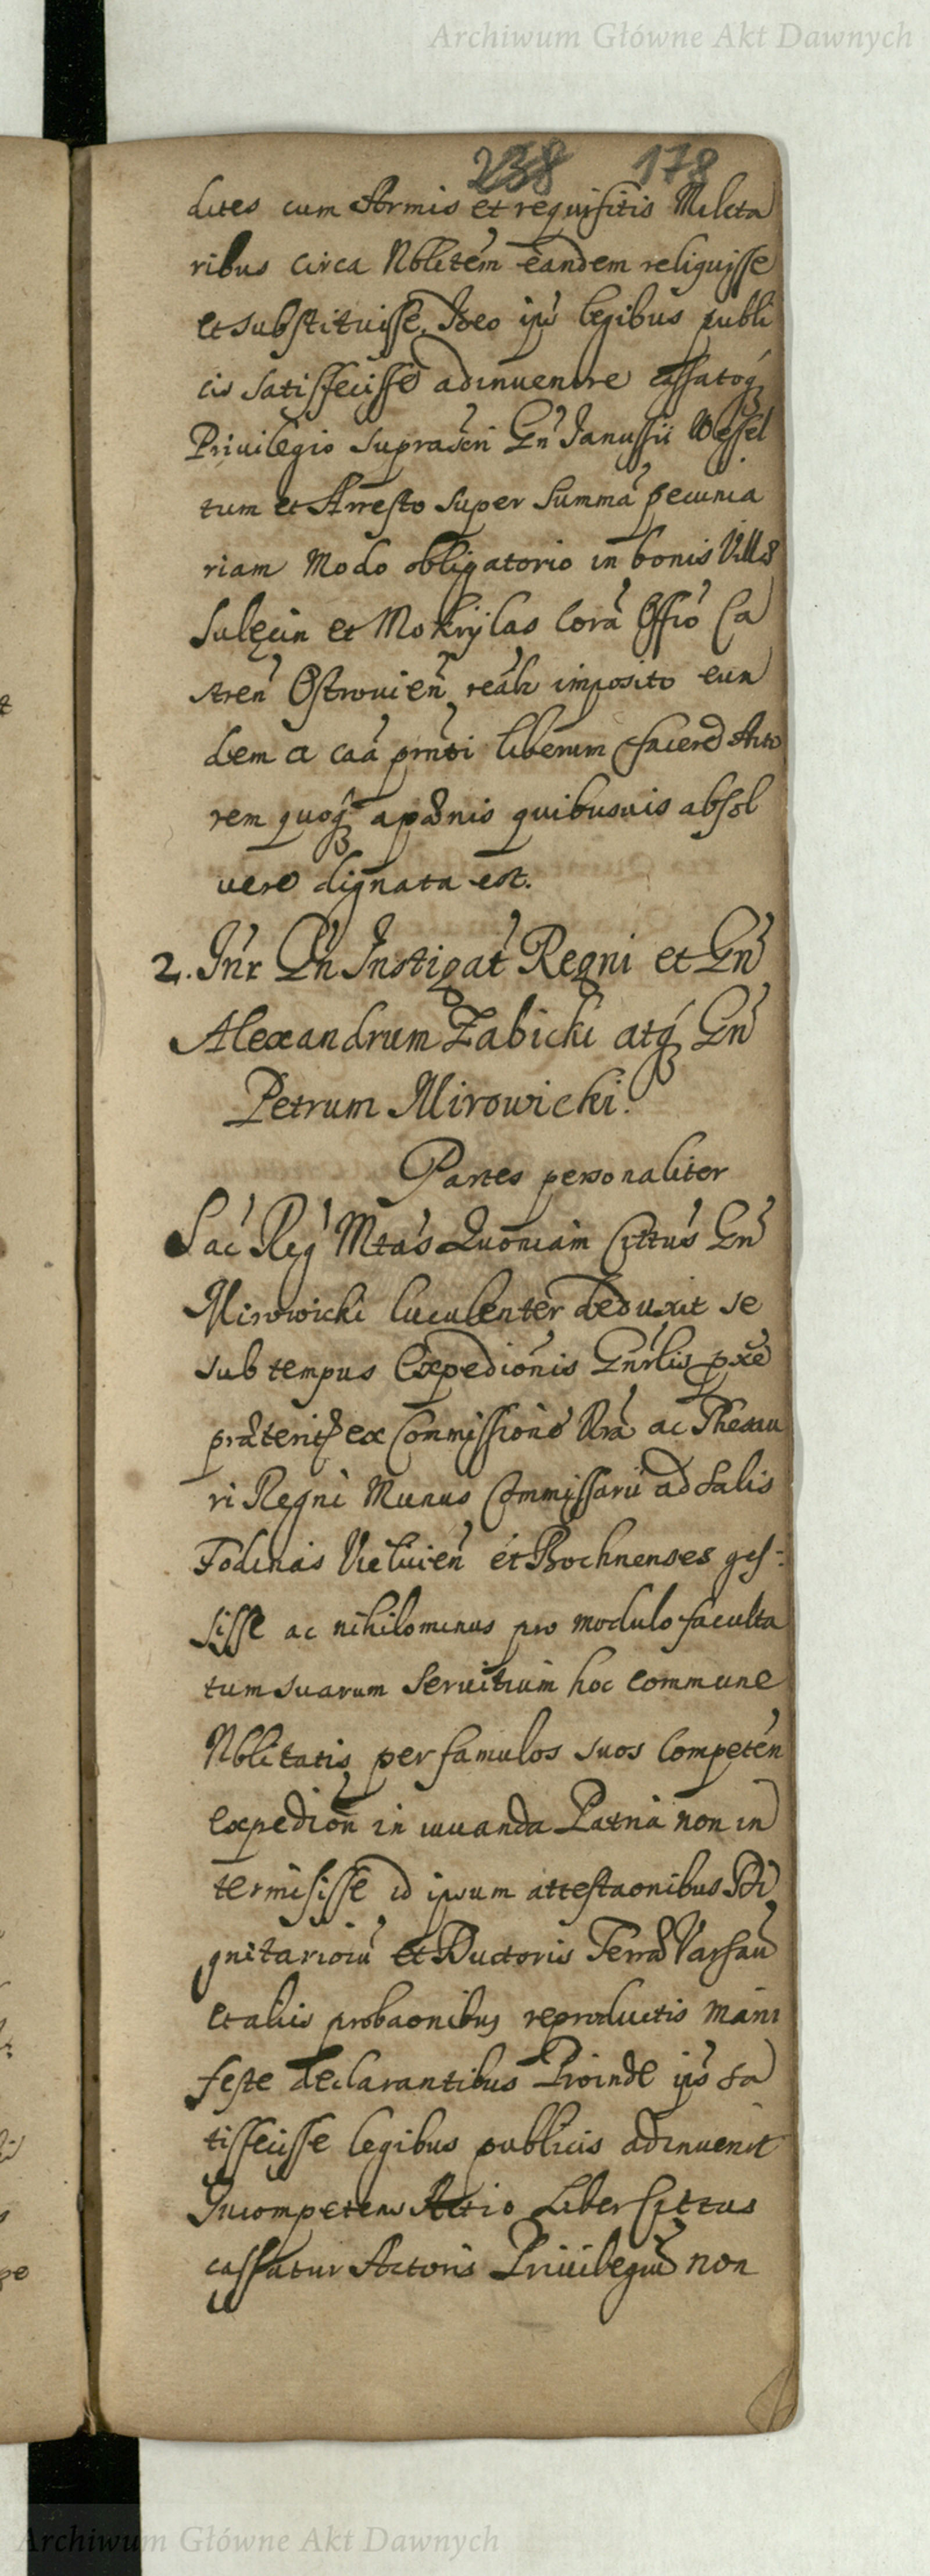 Archiwum Główne Akt Dawnych
238 178
dites cum Armis et requisitis Milita
ribus circa Nblitem eandem reliquisse
et substituisse. Ideo ips legibus publi
cis satisfecisse adinvenire cassatoq
Privilegio suprascri Gn Janussii Wessel
tum et Arresto super summa pecunia
riam Modo obligatorio in bonis Villis
Sulęcin et Mokrylas Cora Offio Ca
stren Ostrovien realr imposito eun
dem a caa prnti liberum facere Acto
rem quoq a poenis quibusvis absol
vere dignata est.
2. Intr Gn Instigat Regni et Gn
Alexandrum Zabicki atq Gn
Petrum Mirowicki.
Partes personaliter
Sac Reg Mtas Quoniam Cittus Gn
Mirowicki luculenter deduxit se
sub tempus Expedionis Gnrlis pxe
praeterit ex Commissione Nra ac Thesau
ri Regni Munus Commissarii ad Salis
Fodinas Vielicien et Bochnenses ges-
sisse ac nihilominus pro modulo faculta
tum suarum servitium hoc commune
Nblitatis per famulos suos Competen
expedion in iuvanda Patria non in
termisisse id ipsum attestaonibus Di
gnitarioru et Ductoris Terrae Varsav
et aliis probaonibus reproductis mani
feste declarantibus Proinde ips sa
tisfecisse legibus publicis adinvenit
Incompetens Actio Liber Cittus
cassatur Actoris Privilegiu non
Archiwum Główne Akt Dawnych